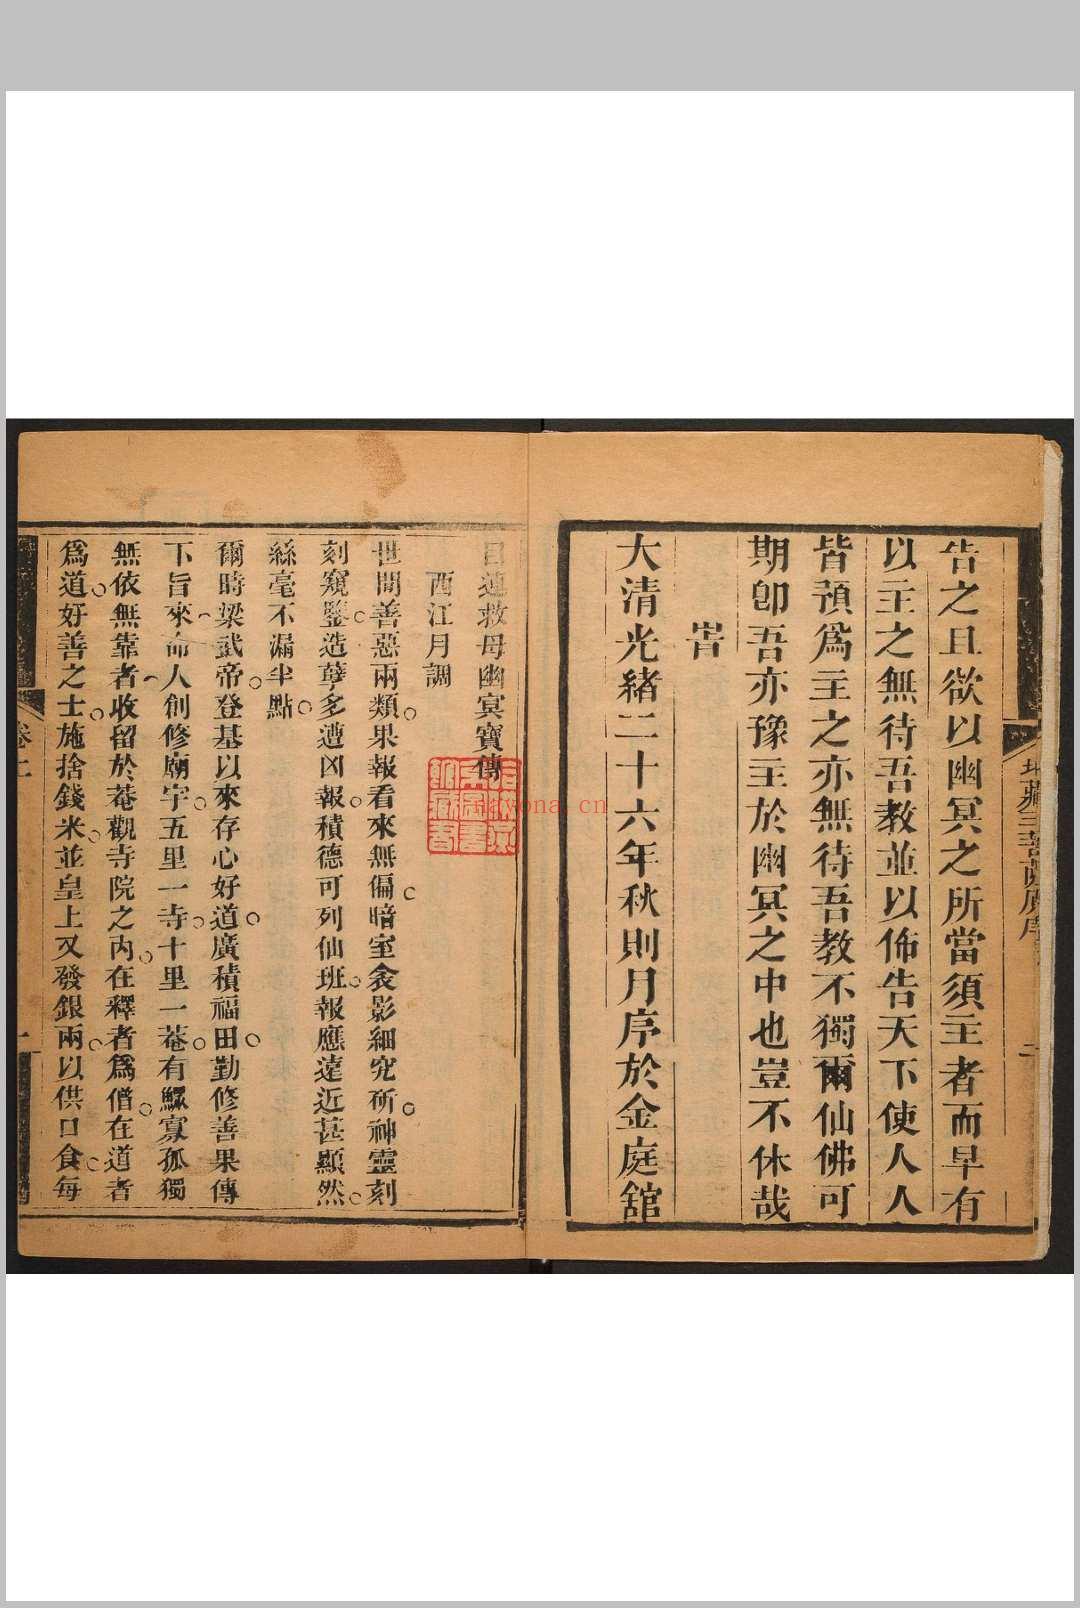 告之且欲以幽冥之所當須主者而早有
以主之無待吾教並以佈告天下使人人
皆預爲主之亦無待吾教不獨爾仙佛可
期卽吾亦豫主於幽冥之中也豈不休哉
大清光緒二十六年秋則月序於金庭舘
目連救母幽冥寶傳
西江月調
世間善惡兩類果報看來無偏暗室衾影細究硏神靈刻
刻窺鑒造孽多遭凶報積德可列仙班報應遠近甚顯然
絲毫不漏半點
爾時梁武帝登基以來存心好道廣積福田勤修善果傳
下旨來命人創修廟宇五里一寺十里一菴有鰥寡孤獨
無依無靠者收留於菴觀寺院之內在釋者爲僧在道者
爲道好善之士施捨錢米並皇上又發銀兩以供口食每
卷上
一